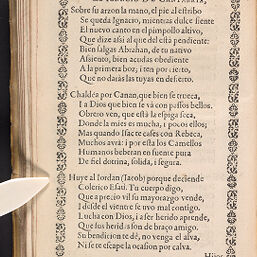 Sobre su arzon la mano, el pie al estribo
Se queda Ignacio, mientras dulce siente
El nuevo canto en el pimpollo altivo,
Que dize assi al que del està pendiente:
Bien salgas Abrahan, de tu nativo
Assiento, bien acudas obediente
A la primera boz; i ten por cierto,
Que no daràs las tuyas en desierto.
Chaldea por Canan, que bien se trueca,
I a Dios que bien se và con passos bellos.
Obrero ven, que està la espiga seca,
Donde la mies es mucha, i pocos ellos;
Mas quando Isac te cases con Rebeca,
Muchos avrà: i por ella los Camellos
Humanos beberan en fuente pura
De fiel dotrina, solida, i segura.
Huye al Iordan (Iacob) porque deciende
Colerico Esaù. Tu cuerpo digo,
Que a precio vil su mayorazgo vende,
I desde el vientre se uvo mal contigo.
Lucha con Dios, i a ser herido aprende,
Que sus heridas son de braço amigo.
Su bendicion te dè, no venga el alva,
Ni se te escape la ocasion por calva.